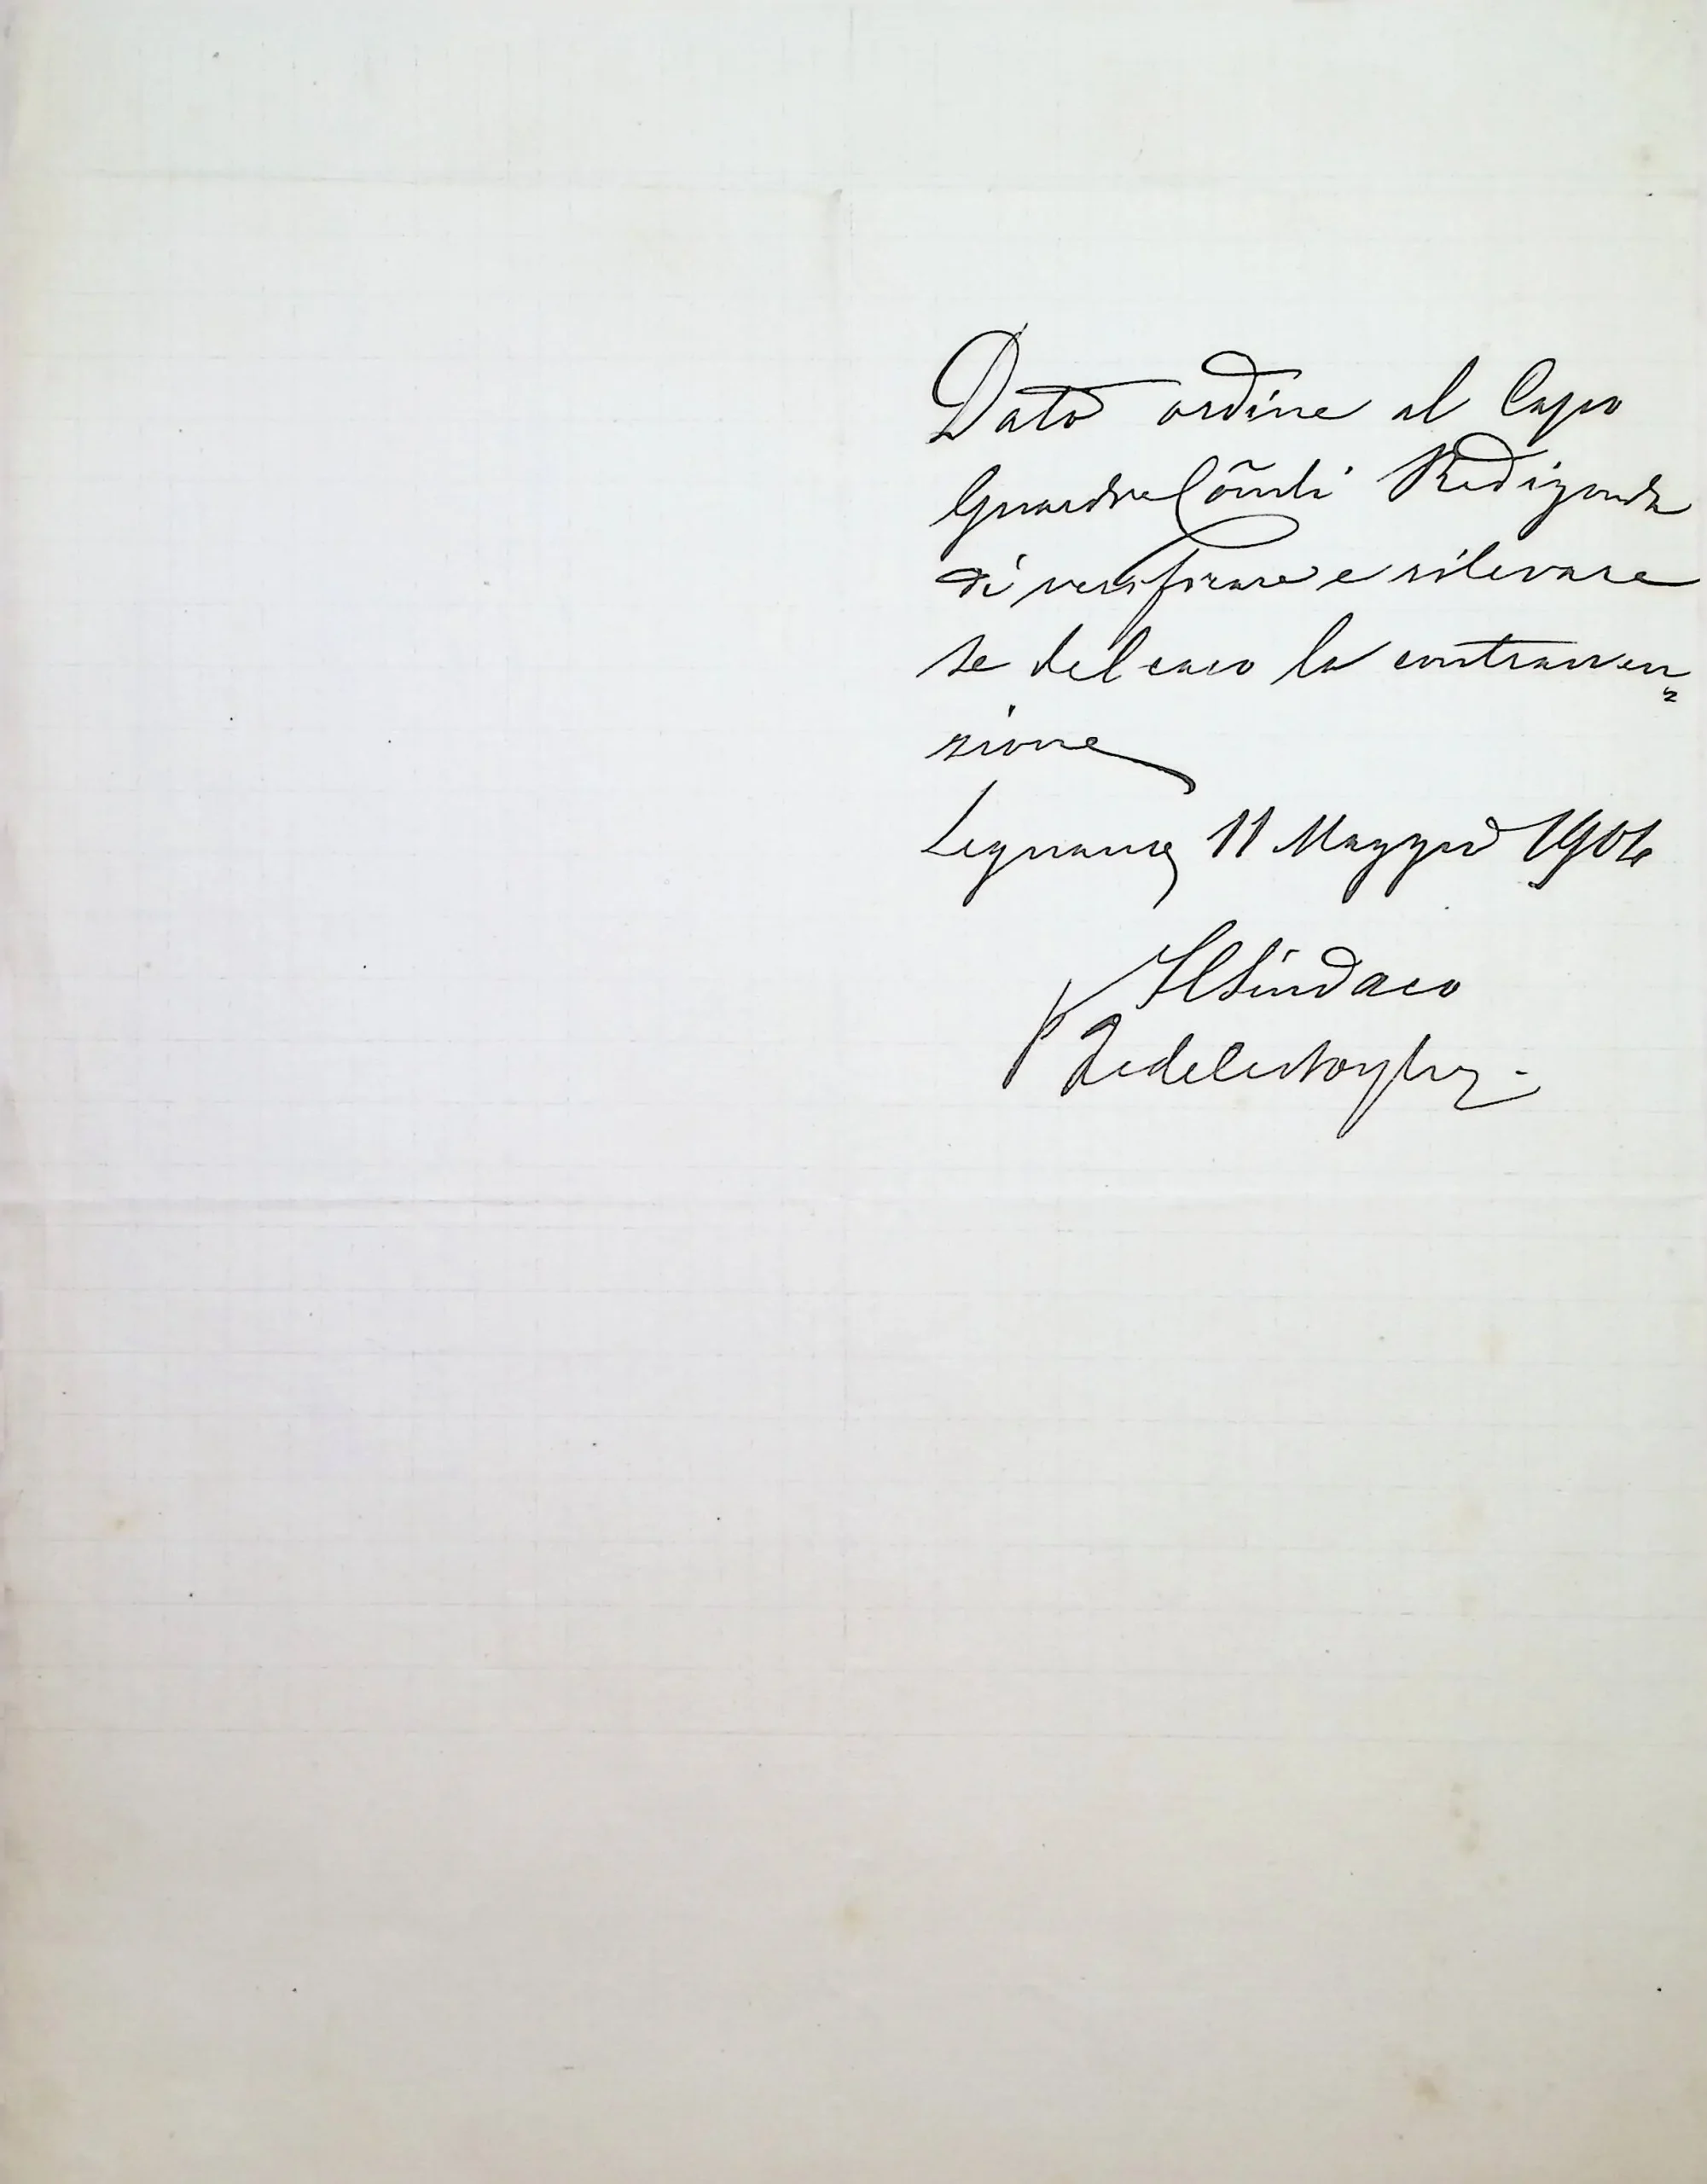 Dato ordine al Capo
Guardie Com̃li Redizonda
di verificare e rilevare
se del caso la contravven
zione
Legnano, 11 Maggio 1904
Il Sindaco